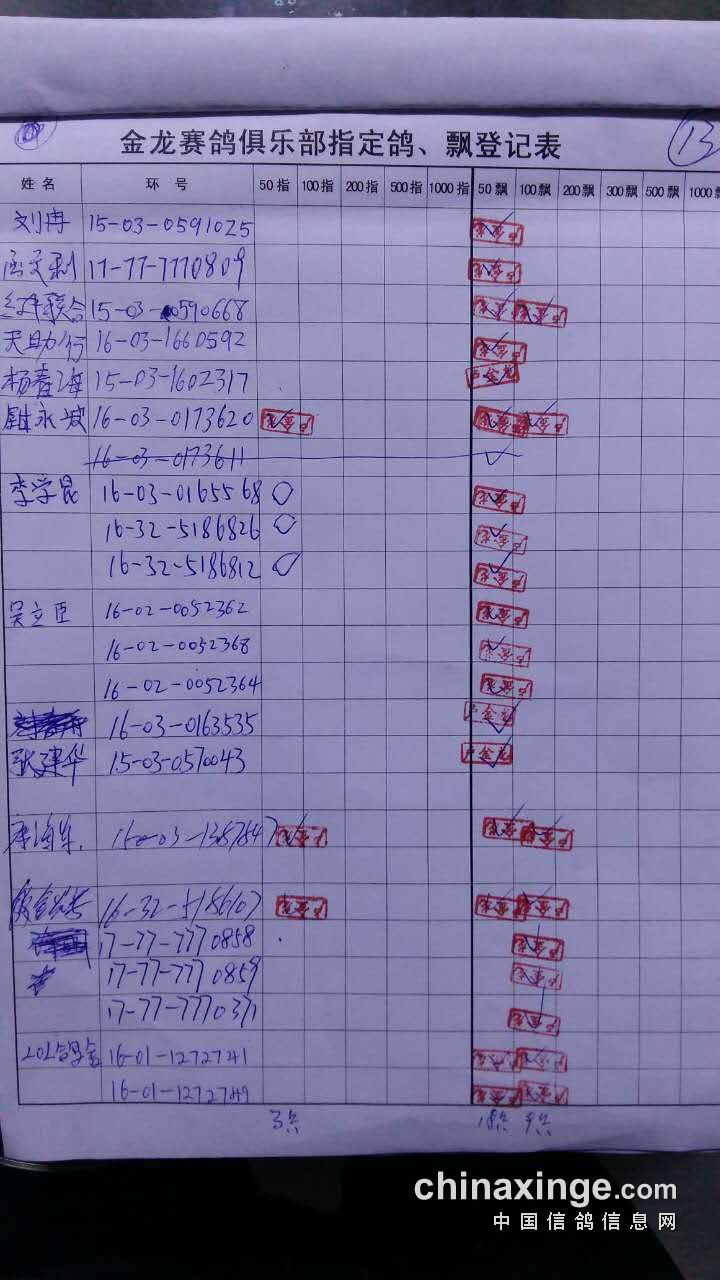 金龙赛鸽俱乐部指定鸽、飘登记表
13
姓名 环号 50指 100指 200指 500指 1000指 50飘 100飘 200飘 300飘 500飘 1000飘
刘冉 15-03-0591025
17-77-7770809
15-03-0590668
天助行 16-03-1660592
杨春海 15-03-1602317
尉永波 16-03-0173620
16-03-0173611
李学昆 16-03-0165568
16-32-5186826
16-32-5186812
吴立臣 16-02-0052362
16-02-0052368
16-02-0052364
16-03-0163535
张建华 15-03-0570043
16-32-5186107
17-77-7770858
17-77-7770859
17-77-7770371
16-01-1272741
16-01-1272749
chinaxinge.com
中国信鸽信息网